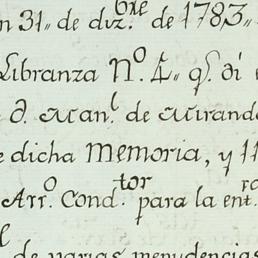 n 31,, de diz.bre de 1783,,
Libranza No 4,, q.e di e
e D. Man.l de Mirando
e dicha Memoria, y 11
Arr.o Cond.tor para la ent.
de varias menudencias